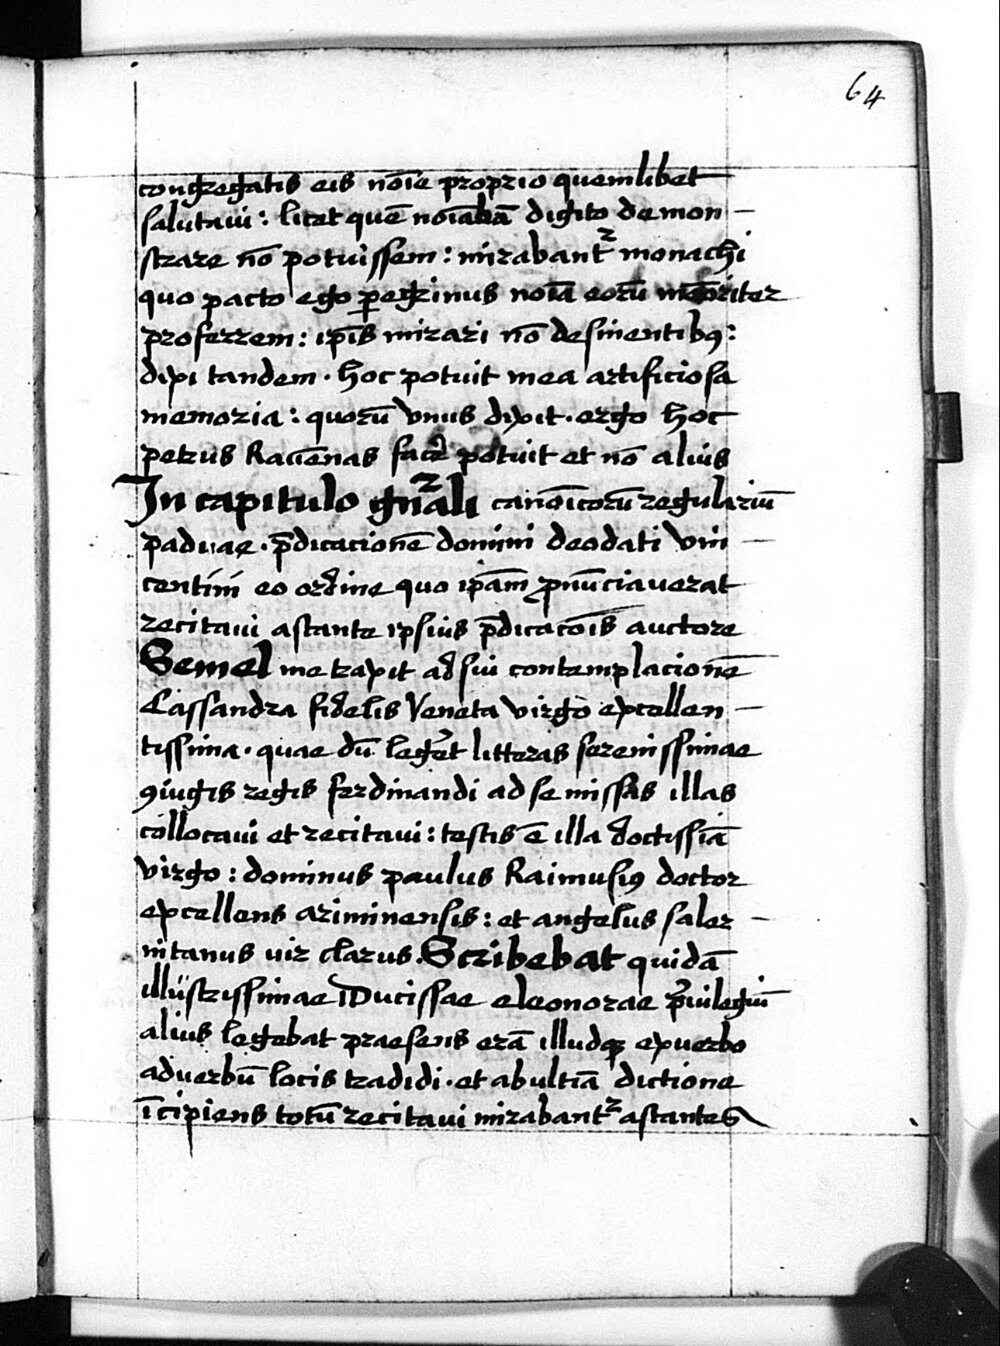 64
congregatis eis noīe proprio quemlibet
salutaui: licet quē noīabā digito demon—
strare nō potuissem: mirabantᷣ monachi
quo pacto ego ꝑegrinus noīa eorū memoriter
proferrem: ip̄is mirari nō desinentibꝰ:
dixi tandem. hoc potuit mea artificiosa
memoria: quorū vnus dixit. ergo hoc
petrus Rauēnas facē potuit et nō alius
In capitulo gn̄ali canōicorū regulariū
paduae. p̄dicacionē domini deodati vin—
centini eo ordine quo ipām ꝓnūciauerat
recitaui astante ipsius p̄dicacōis auctore
Semel me rapit ad sui contemplacionē
Cassandra fidelis Veneta virgo excellen—
tissima. quae dū leget̄ litteras serenissimae
ꝯiugis regis ferdinandi ad se missas illas
collocaui et recitaui: testis ē illa doctissīa
virgo: dominus paulus Raimusiꝰ doctor
excellens ariminensis: et angelus saler—
nitanus uir clarus. Scribebat quidā
illustrissimae Ducissae eleonorae p̄uilegiū
alius legebat praesens erā illudqꝫ ex uerbo
ad uerbū locis tradidi. et ab ultīa dictione
īcipiens totū recitaui mirabantᷣ astantes